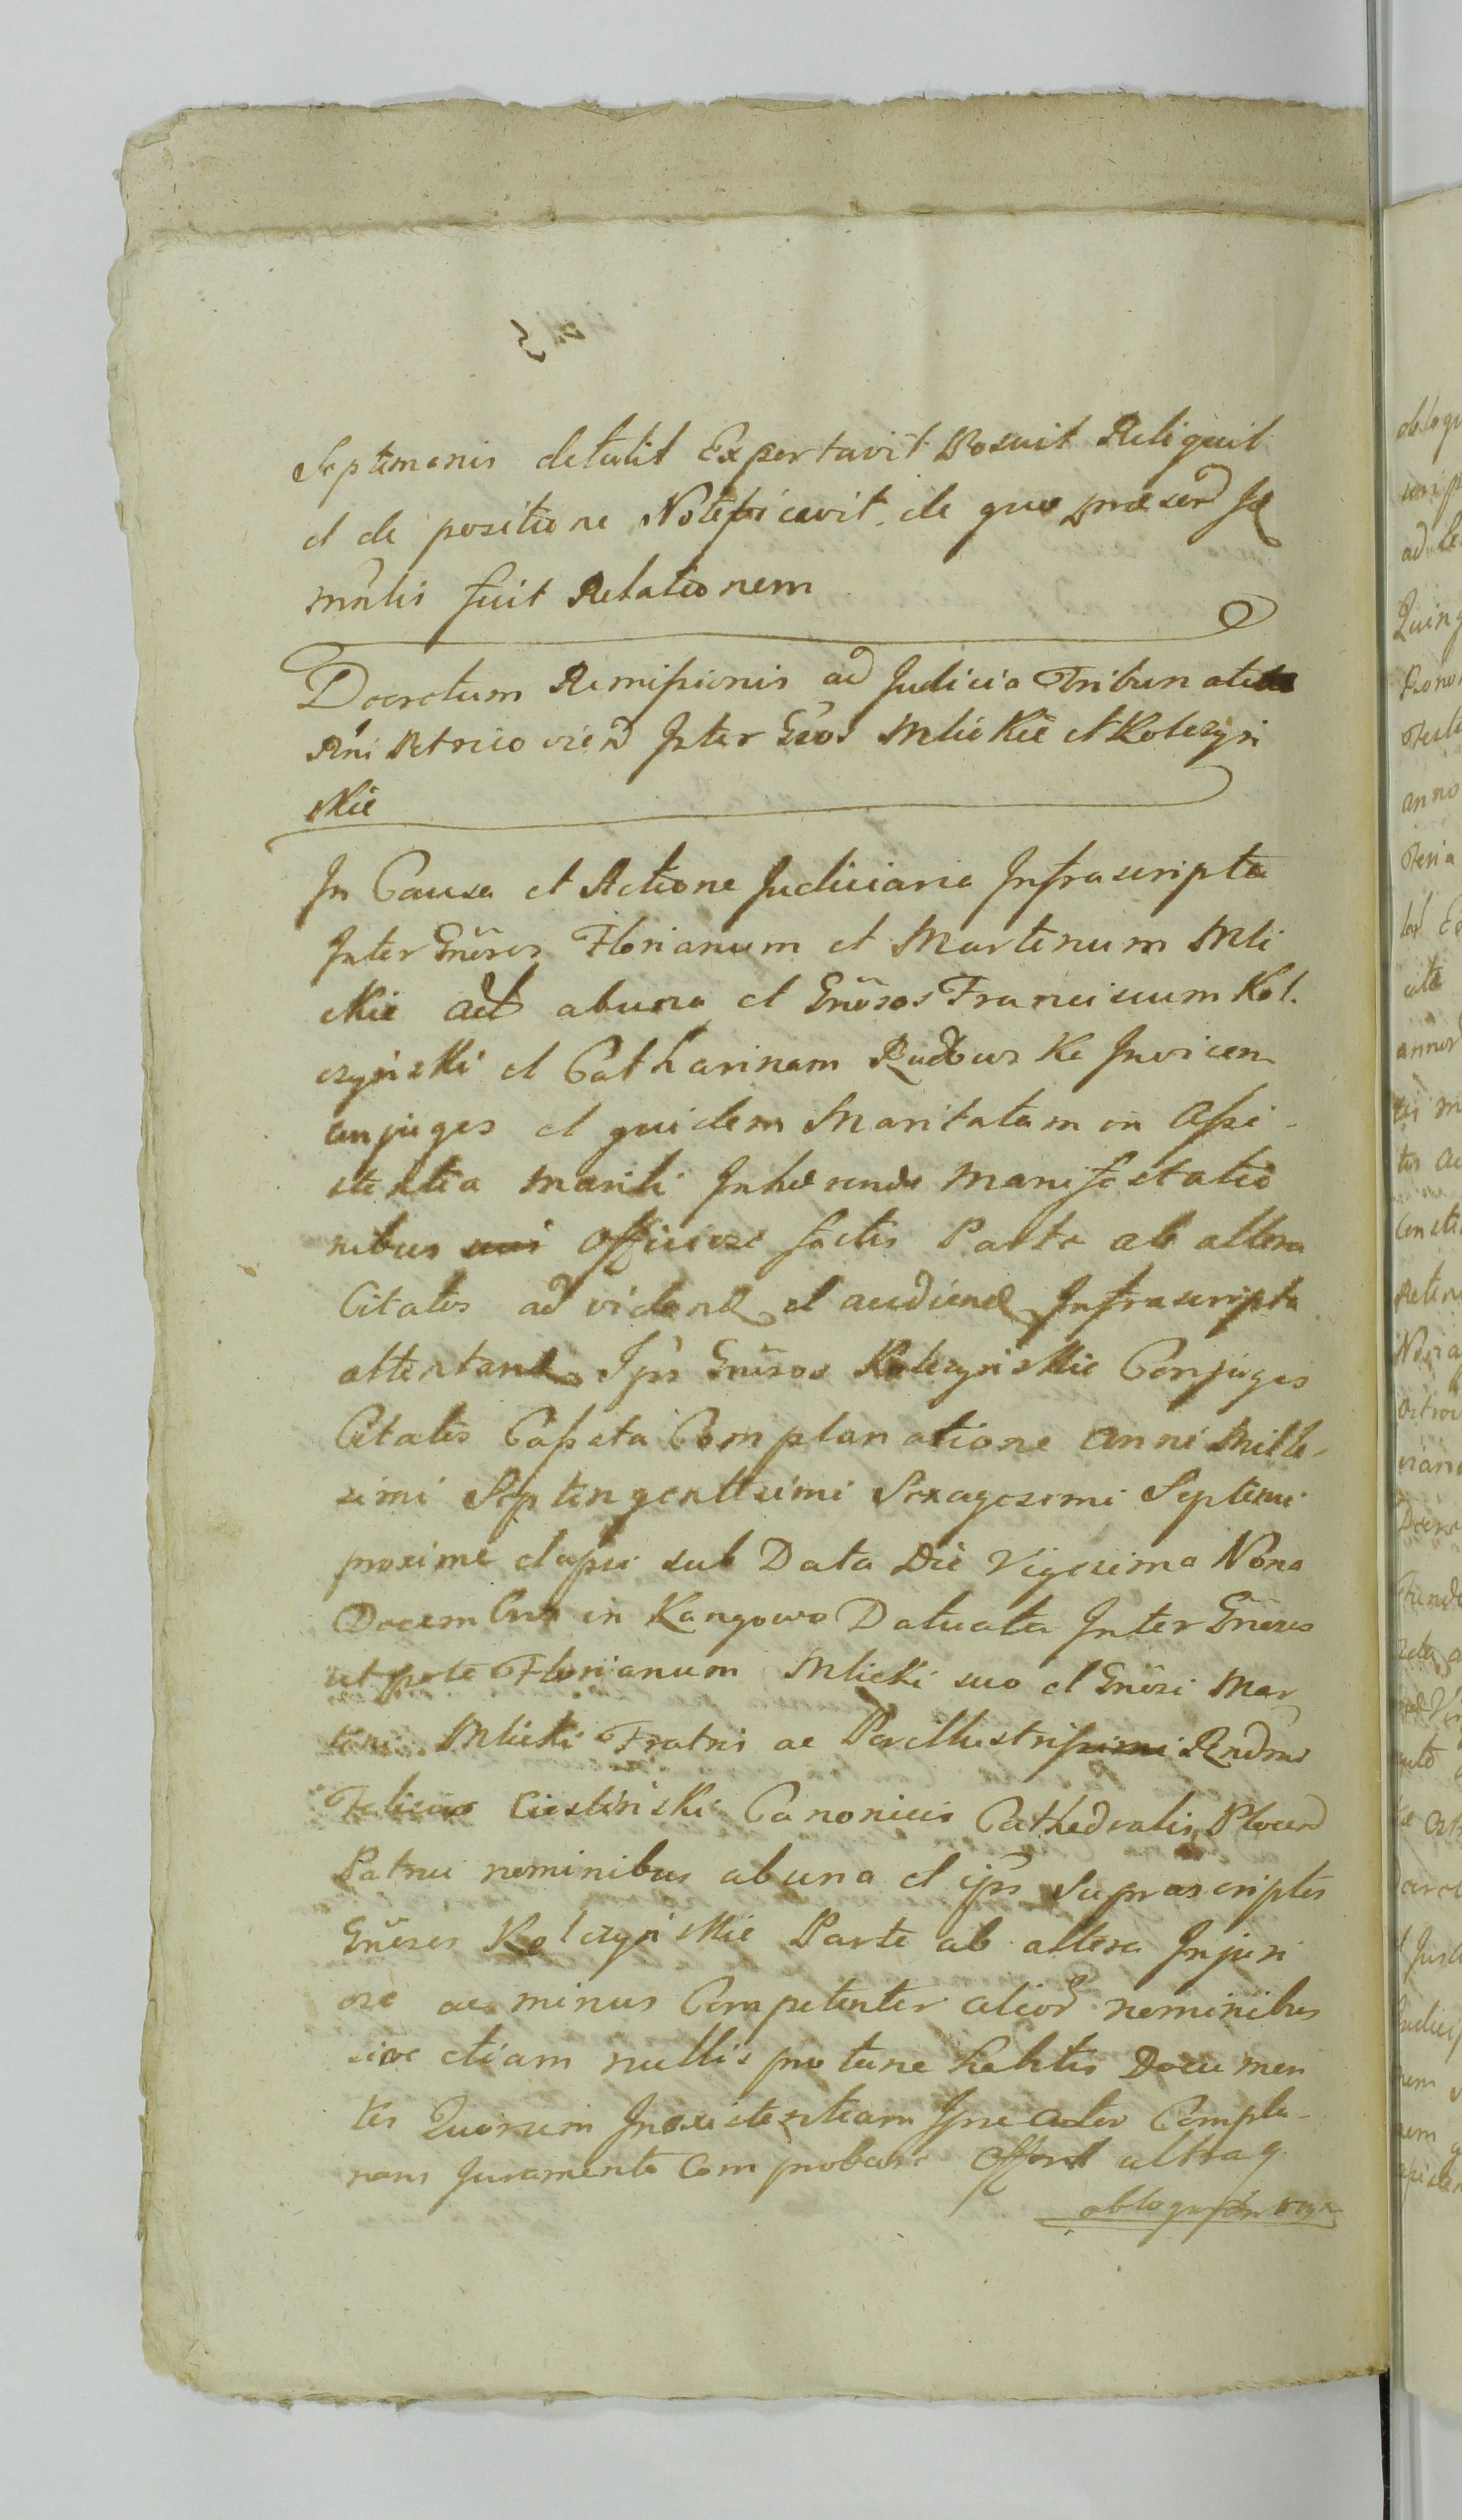 Septimanis detulit Exportavit Posuit Reliquit
et de positione Notificavit de quo præsend Jd
mnlis fecit Relationem
Decretum Remissionis ad Judicia Tribunalitia
Rni Petricovien Inter Gnos Mlickie et Kolczyn
skie
In Causa et Actione Judiciaria Infrascripta
Inter Gnosos Florianum et Martinum Mli
ckie act ab una et Gnosos Franciscum Kol.
czynski et Catharinam Invicem
conjuges et quidem Maritatam in Assi-
stentia Mariti Inhærendo Manifestatio
nibus Officiose factis Parte ab altera
Citatos ad videnđ et audienđ Infrascripta
attentanđ Ipsi Gnosos Kolczynskie Conjuges
Citatos Cassata Complanatione Anni Mille-
simi Septingentesimi Sexagesimi Septimi
proxime elapsi sub Data Die Vigesima Nona
Decembris in Kangowo Datuata Inter Gnosos
utpote Florianum Mlicki suo et Gnosi Mar
tini Mlicki Fratris ac Perillustrissimi Rndmi
Felicis Ciesliński Canonici Cathedralis Plocen
Patrui nominibus ab una et ipsi Suprascriptos
Gnosos Kolczynskie Parte ab altera Injuri
ose ac minus Competenter aliorđ nominibus
sive etiam nullis pro tunc habitis Documen
tis Quorum Inexistentiam Ipse actor Compla-
nans Juramento Comprobare Offert altraq